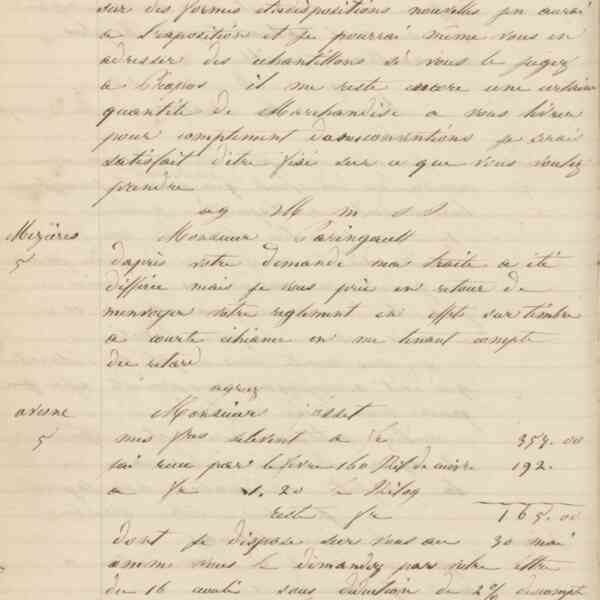 sur des formes et dispositions nouvelles jen aurai
a L'exposition et je pourrai même vous en
adresser des echantillons si vous le jugez
a Propos il me reste encore une certaine
quantité de Marchandise a vous livrer
pour complement de nos conventions je serais
satisfait d'etre fixé sur ce que vous voulez
prendre
ag M m s s
Mezières Monsieur Paringault
5 daprès votre demande ma traite a été
differée mais je vous prie en retour de
menvoyer votre reglement en effets sur timbre
a courte écheance en me tenant compte
du retard
agrez
avesne Monsieur asset
5 mes fres selevent a fr 357.00
jai recu par lefevre 160 Kil de cuivre 192.
a fr 1.20 le Kilog
reste fr 165.00
dont je dispose sur vous au 30 mai
comme vous le demandez par votre lettre
du 16 avril sous deduction de 2% descompte